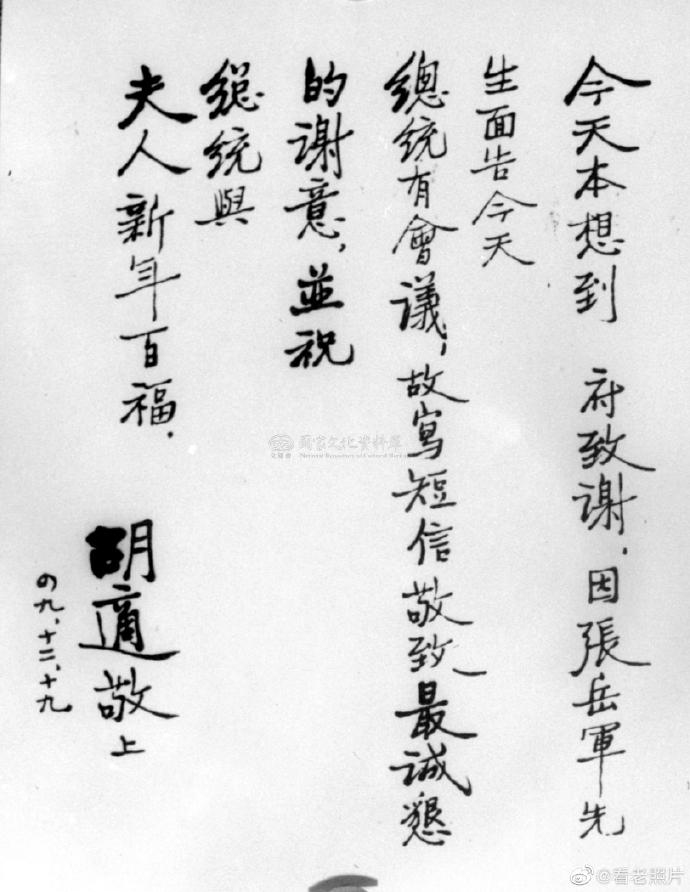 今天本想到　府致謝，因張岳軍先
生面告今天
總統有會議，故寫短信敬致最誠懇
的謝意，並祝
總統與
夫人新年百福．
胡適敬上
四九、十二、十九
國家文化資料庫
@看老照片